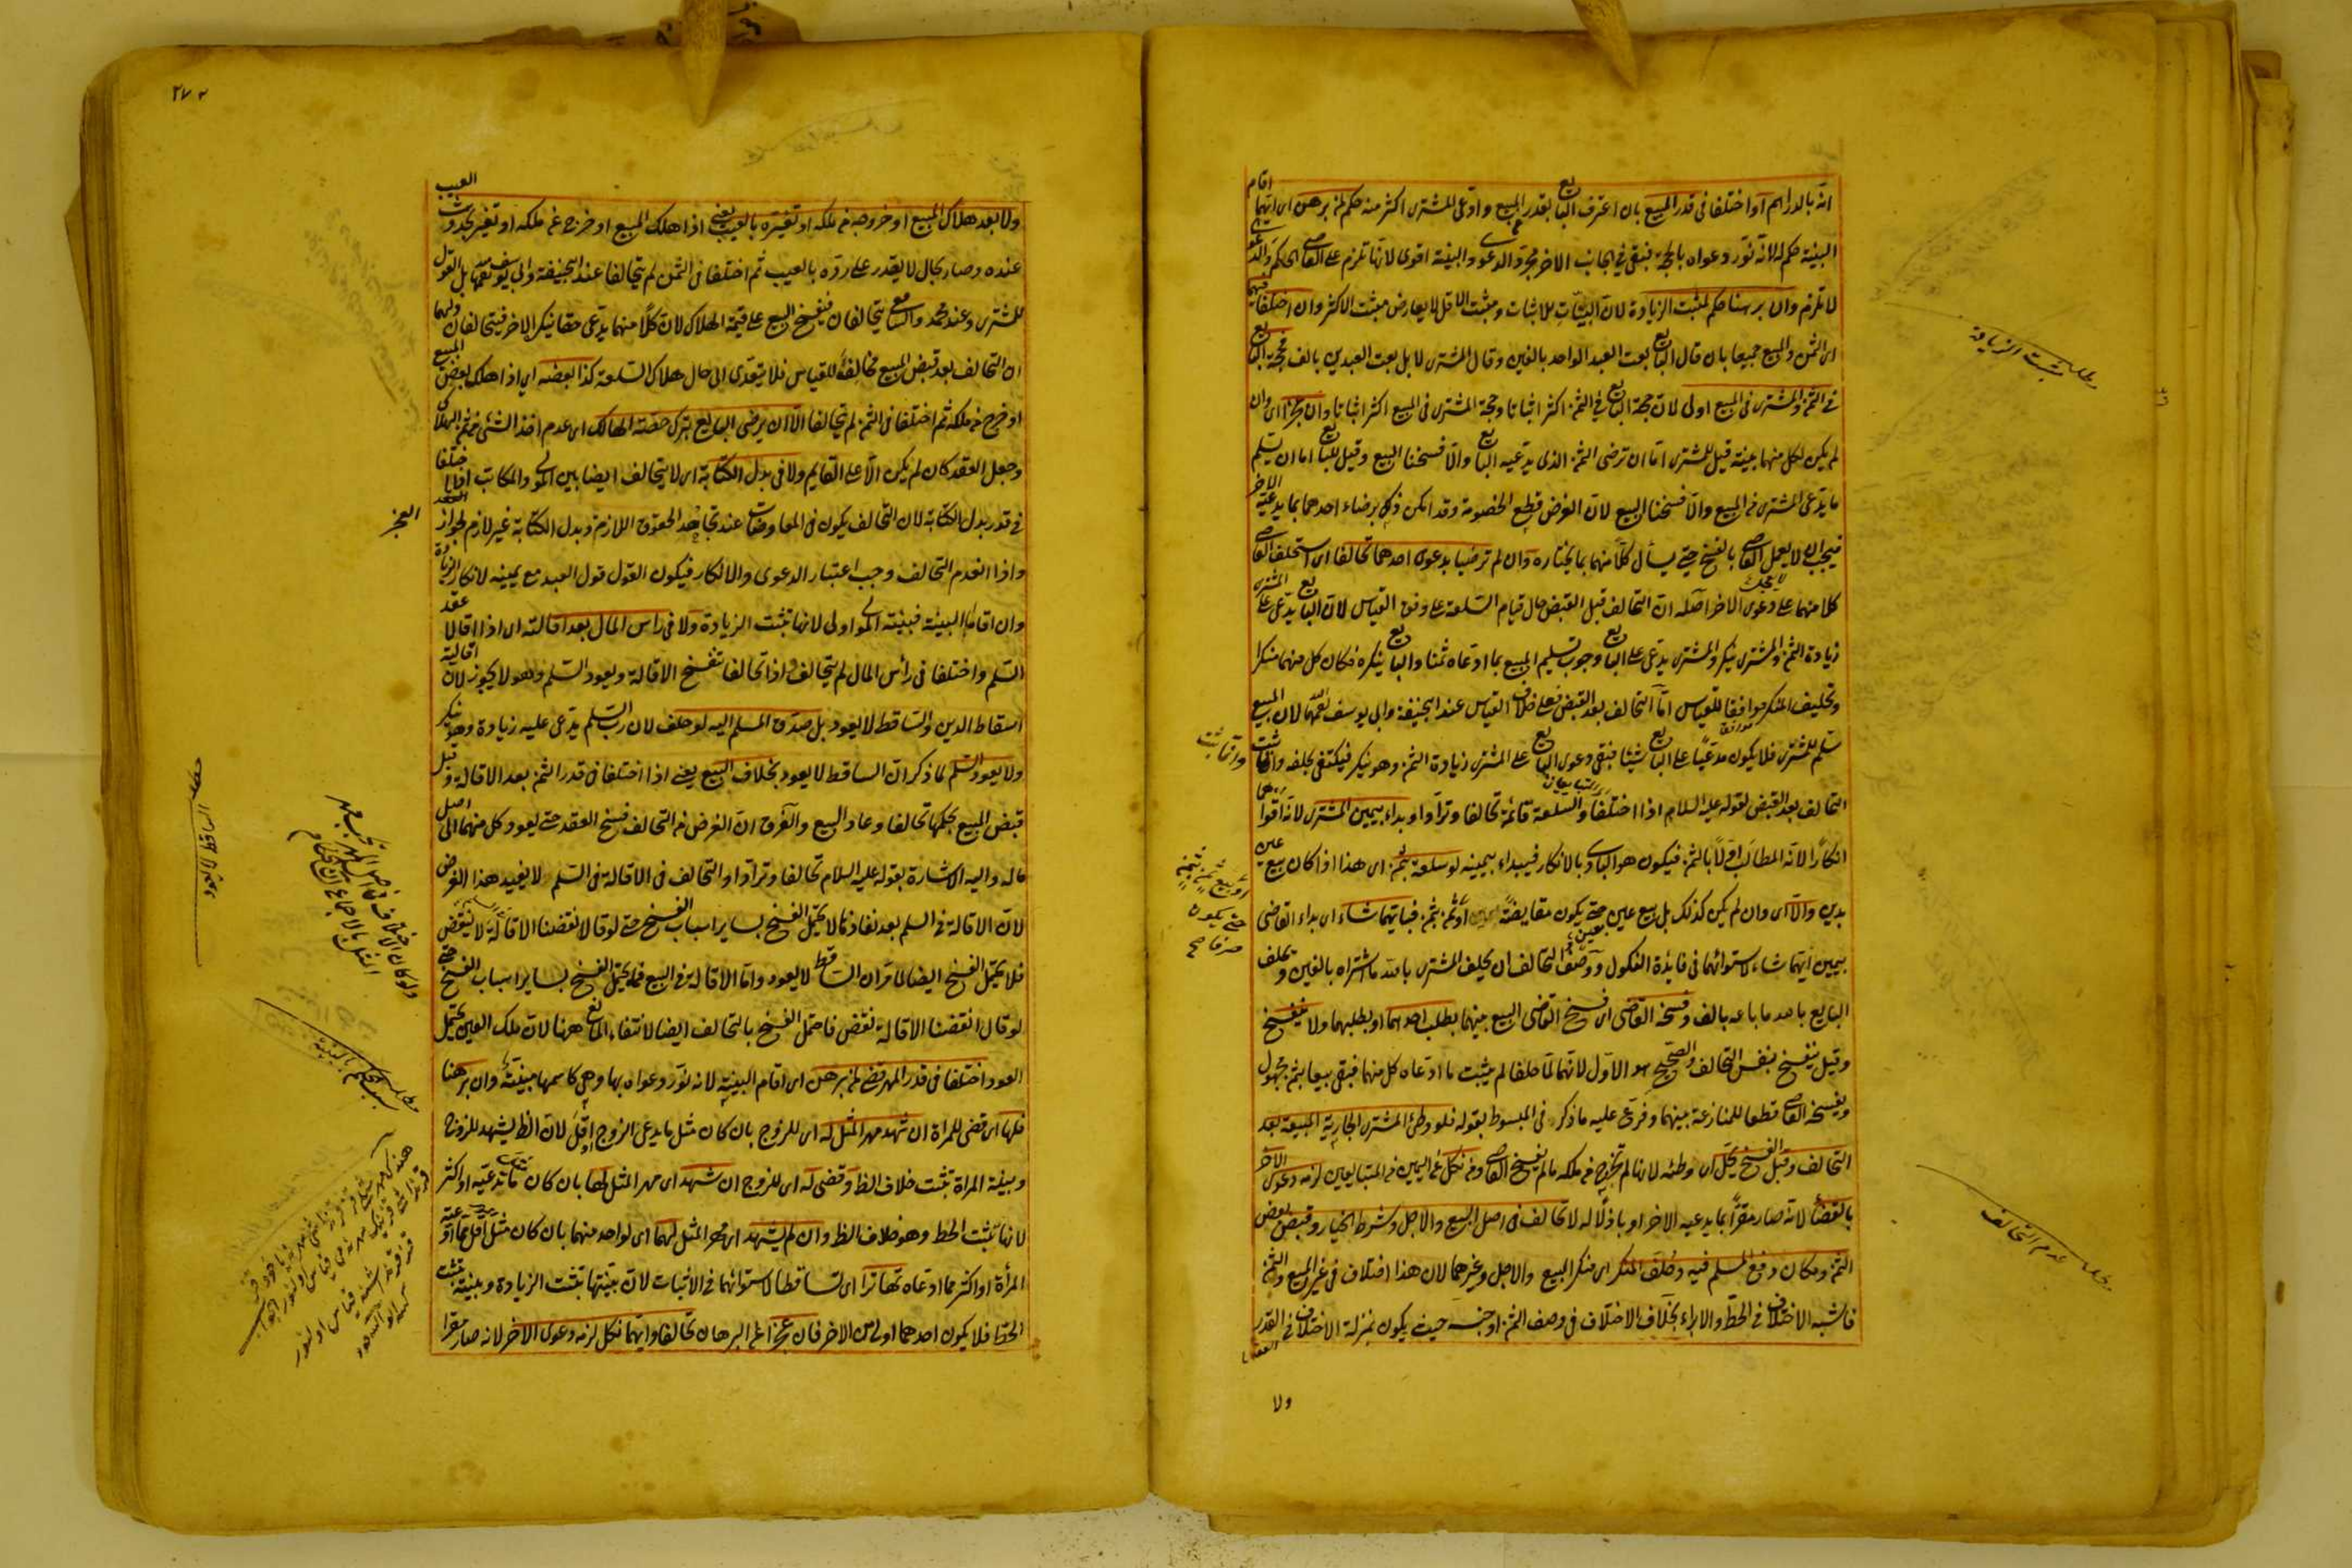 انه بالدراهم او اختلفا فى قدر المبيع بان اعترف البايع بقدر المبيع وادعى المشترى اكثر منه حكم لمن برهن اى ايهما اقام
البينة حكم له لانه نور دعواه بالحجة فبقى فى الجانب الاخر مجرد الدعوى والبينة اقوى لانها تلزم على القاضى الحكم والدعوى
لا تلزم وان برهنا حكم لمثبت الزيادة لان البينات للاثبات ومثبت الاقل لا يعارض مثبت الاكثر وان اختلفا فيهما
اى الثمن والمبيع جميعا بان قال البايع بعت العبد الواحد بالفين وقال المشترى لا بل بعت العبدين بالف فحجة البايع
فى الثمن والمشترى فى المبيع اولى لان حجة البايع فى الثمن اكثر اثباتا وحجة المشترى فى المبيع اكثر اثباتا وان عجزا اى وان
لم يكن لكل منهما بينة قيل للمشترى اما ان ترضى الثمن الذى يدعيه البايع والا فسخنا البيع وقيل للبايع اما ان تسلم
ما يدعى المشترى من المبيع والا فسخنا البيع لان الغرض قطع الخصومة وقد امكن ذلك برضاء احدهما بما يدعيه الاخر
فيجب ان لا يعجل القاضى بالفسخ حتى يسأل كلا منهما بما يختاره وان لم ترضيا بدعوى احدهما تحالفا اى استحلف القاضى
كلا منهما على دعوى الاخر اصله ان التحالف قبل القبض حال قيام السلعة على وفق القياس لان البايع يدعى على المشترى
زيادة الثمن والمشترى ينكر والمشترى يدعى على البايع وجوب تسليم المبيع بما ادعاه ثمنا والبايع ينكره فكان كل منهما منكرا
وتحليف المنكر موافقا للقياس اما التحالف بعد القبض فعلى خلاف القياس عند ابى حنيفة وابى يوسف لان المبيع
سلم للمشترى فلا يكون مدعيا على البايع شيئا فبقى دعوى البايع على المشترى زيادة الثمن وهو ينكر فيكتفى بحلفه وانما ثبت
التحالف بعد القبض لقوله عليه السلام اذا اختلفا المتبايعان والسلعة قائمة تحالفا وترادا وبداء بيمين المشترى لانه اقواهما
انكارا لانه المطالب اولا بالثمن فيكون هو البادى بالانكار فيبداء بيمينه لو سلعة بثمن اى هذا اذا كان بيع عين
بدين والا اى وان لم يكن كذلك بل بيع عين حتى يكون مقايضة او ثمن بثمن فبايتهما شاء اى بداء القاضى
بيمين ايهما شاء لاستوائهما فى فايدة النكول وصفة التحالف ان يحلف المشترى بالله ما اشتراه بالفين ويحلف
البايع بالله ما باعه بالف وفسخه القاضى اى فسخ القاضى البيع بينهما بطلب احدهما او بطلبهما ولا ينفسخ
وقيل ينفسخ بنفس التحالف والصحيح هو الاول لانهما لما حلفا لم يثبت ما ادعاه كل منهما فبقى بيعا بثمن مجهول
ويفسخه القاضى قطعا للمنازعة بينهما وفرع عليه ما ذكر فى المبسوط بقوله فلو وطئ المشترى الجارية المبيعة بعد
التحالف وقبل الفسخ يحل اى وطئه لانها لم تخرج من ملكه ما لم يفسخ القاضى ومن نكل عن اليمين من المتبايعين لزمه دعوى الاخر
بالقضاء لانه صار مقرا بما يدعيه الاخر او باذلا له لا تحالف فى اصل البيع والاجل وشرط الخيار وقبض بعض
الثمن ومكان دفع المسلم فيه وحلف المنكر اى منكر البيع والاجل وغيرهما لان هذا اختلاف فى غير المبيع والثمن
فاشبه الاختلاف فى الحط والابراء بخلاف الاختلاف فى وصف الثمن او جنسه حيث يكون بمنزلة الاختلاف فى القدر
ولا
مثبت الزيادة
مطلب عدم التحالف
وانما ثبت
او بيع ثمن بثمن
حتى يكون
صرفا صح
٢٧٠
ولا بعد هلاك المبيع او خروجه من ملكه او تغيره بالعيب يعنى اذا هلك المبيع او خرج عن ملكه او تغير بحدوث العيب
عنده وصار بحال لا يقدر على رده بالعيب ثم اختلفا فى الثمن لم يتحالفا عند ابى حنيفة وابى يوسف بل القول
للمشترى وعند محمد والشافعى يتحالفان فيفسخ البيع على قيمة الهلاك لان كلا منهما يدعى حقا ينكر الاخر فيتحالفان ولهما
ان التحالف بعد قبض المبيع مخالف للقياس فلا يتعدى الى حال هلاك السلعة كذا بعضه اى اذا هلك بعض المبيع
او خرج من ملكه ثم اختلفا فى الثمن لم يتحالفا الا ان يرضى البايع بترك حصة الهالك اى عدم اخذ الشئ من ثمن الهلاك
وجعل العقد كان لم يكن الا على القايم ولا فى بدل الكتابة اى لا يتحالف ايضا بين المولى والمكاتب اذا اختلفا
فى قدر بدل الكتابة لان التحالف يكون فى المعاوضات عند تجاحد الحقوق اللازمة وبدل الكتابة غير لازم لجواز
واذا انعدم التحالف وجب اعتبار الدعوى والانكار فيكون القول قول العبد مع يمينه لانكار الزيادة
وان اقاما البينة فبينة المولى اولى لانها تثبت الزيادة ولا فى راس المال بعد اقالته اى اذا اقالا عقد
السلم واختلفا فى رأس المال لم يتحالف واذا تحالفا تنفسخ الاقالة ويعود السلم وهو لا يجوز لان اقالته
اسقاط الدين والساقط لا يعود بل صدق المسلم اليه لو حلف لان رب السلم يدعى عليه زيادة وهو ينكر
ولا يعود السلم لما ذكر ان الساقط لا يعود بخلاف البيع يعنى اذا اختلفا فى قدر الثمن بعد الاقالة وقبل
قبض المبيع بحكمها تحالفا وعاد البيع والفرق ان الغرض من التحالف فسخ العقد حتى يعود كل منهما الى اصل
ماله واليه الاشارة بقوله عليه السلام تحالفا وترادا والتحالف فى الاقالة فى السلم لا يفيد هذا الغرض
لان الاقالة فى السلم بعد نفاذها لا يحتمل الفسخ بساير اسباب الفسخ حتى لو قالا نقضنا الاقالة لا ينتقض
فلا يحتمل الفسخ ايضا لما مر ان الساقط لا يعود واما الاقالة فى البيع فما يحتمل الفسخ بساير اسباب الفسخ حتى
لو قالا نقضنا الاقالة تنقض فاحتمل الفسخ بالتحالف ايضا لانتفاء المانع ههنا لان ملك العين يحتمل
العود اختلفا فى قدر المهر قضى لمن برهن اى اقام البينة لانه نور دعواه بها وهى كاسمها مبينة وان برهنا
فلها اى قضى للمرأة ان شهد مهر المثل له اى للزوج بان كان مثل ما يدعى الزوج او اقل لان الظ يشهد للزوج
وبينة المرأة تثبت خلاف الظ وقضى له اى للزوج ان شهد اى مهر المثل لها بان كان ما تدعيه او اكثر
لانها تثبت الحط وهو خلاف الظ وان لم يشهد اى مهر المثل لهما اى لواحد منهما بان كان مثل اقل مما ادعته
المرأة او اكثر مما ادعاه تهاترا اى تساقطا لاستوائهما فى الاثبات لان بينتها تثبت الزيادة وبينته تثبت
الحط فلا يكون احدهما اولى من الاخر فان عجزا عن البرهان تحالفا وايهما نكل لزمه دعوى الاخر لانه صار مقرا
العجز
الساقط لا يعود